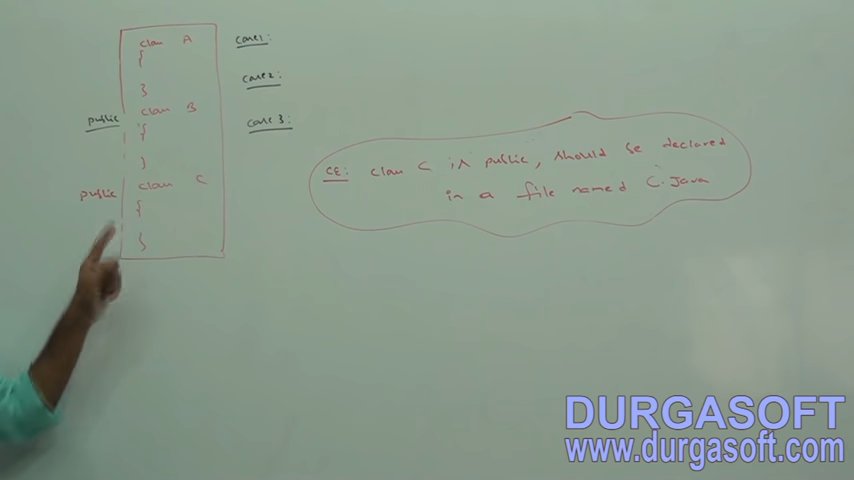 class A
{
}
public class B
{
}
public class C
{
}
case1:
case2:
case 3:
CE: class C is public, should be declared
in a file named C.java
DURGASOFT
www.durgasoft.com